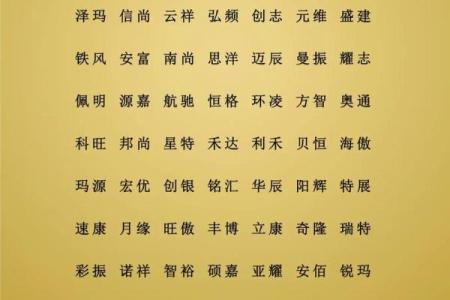 泽玛 信尚 云祥 弘频 创志 元维 盛建
铁风 安富 南尚 思洋 迈辰 曼振 耀志
佩明 源嘉 航驰 恒格 环凌 方智 奥通
科旺 邦尚 星特 禾达 利禾 贝恒 海傲
玛源 宏优 创银 铭汇 华辰 阳辉 特展
速康 月缘 旺傲 丰博 立康 奇隆 瑞特
彩振 诺祥 智裕 硕嘉 亚耀 安佰 锐玛